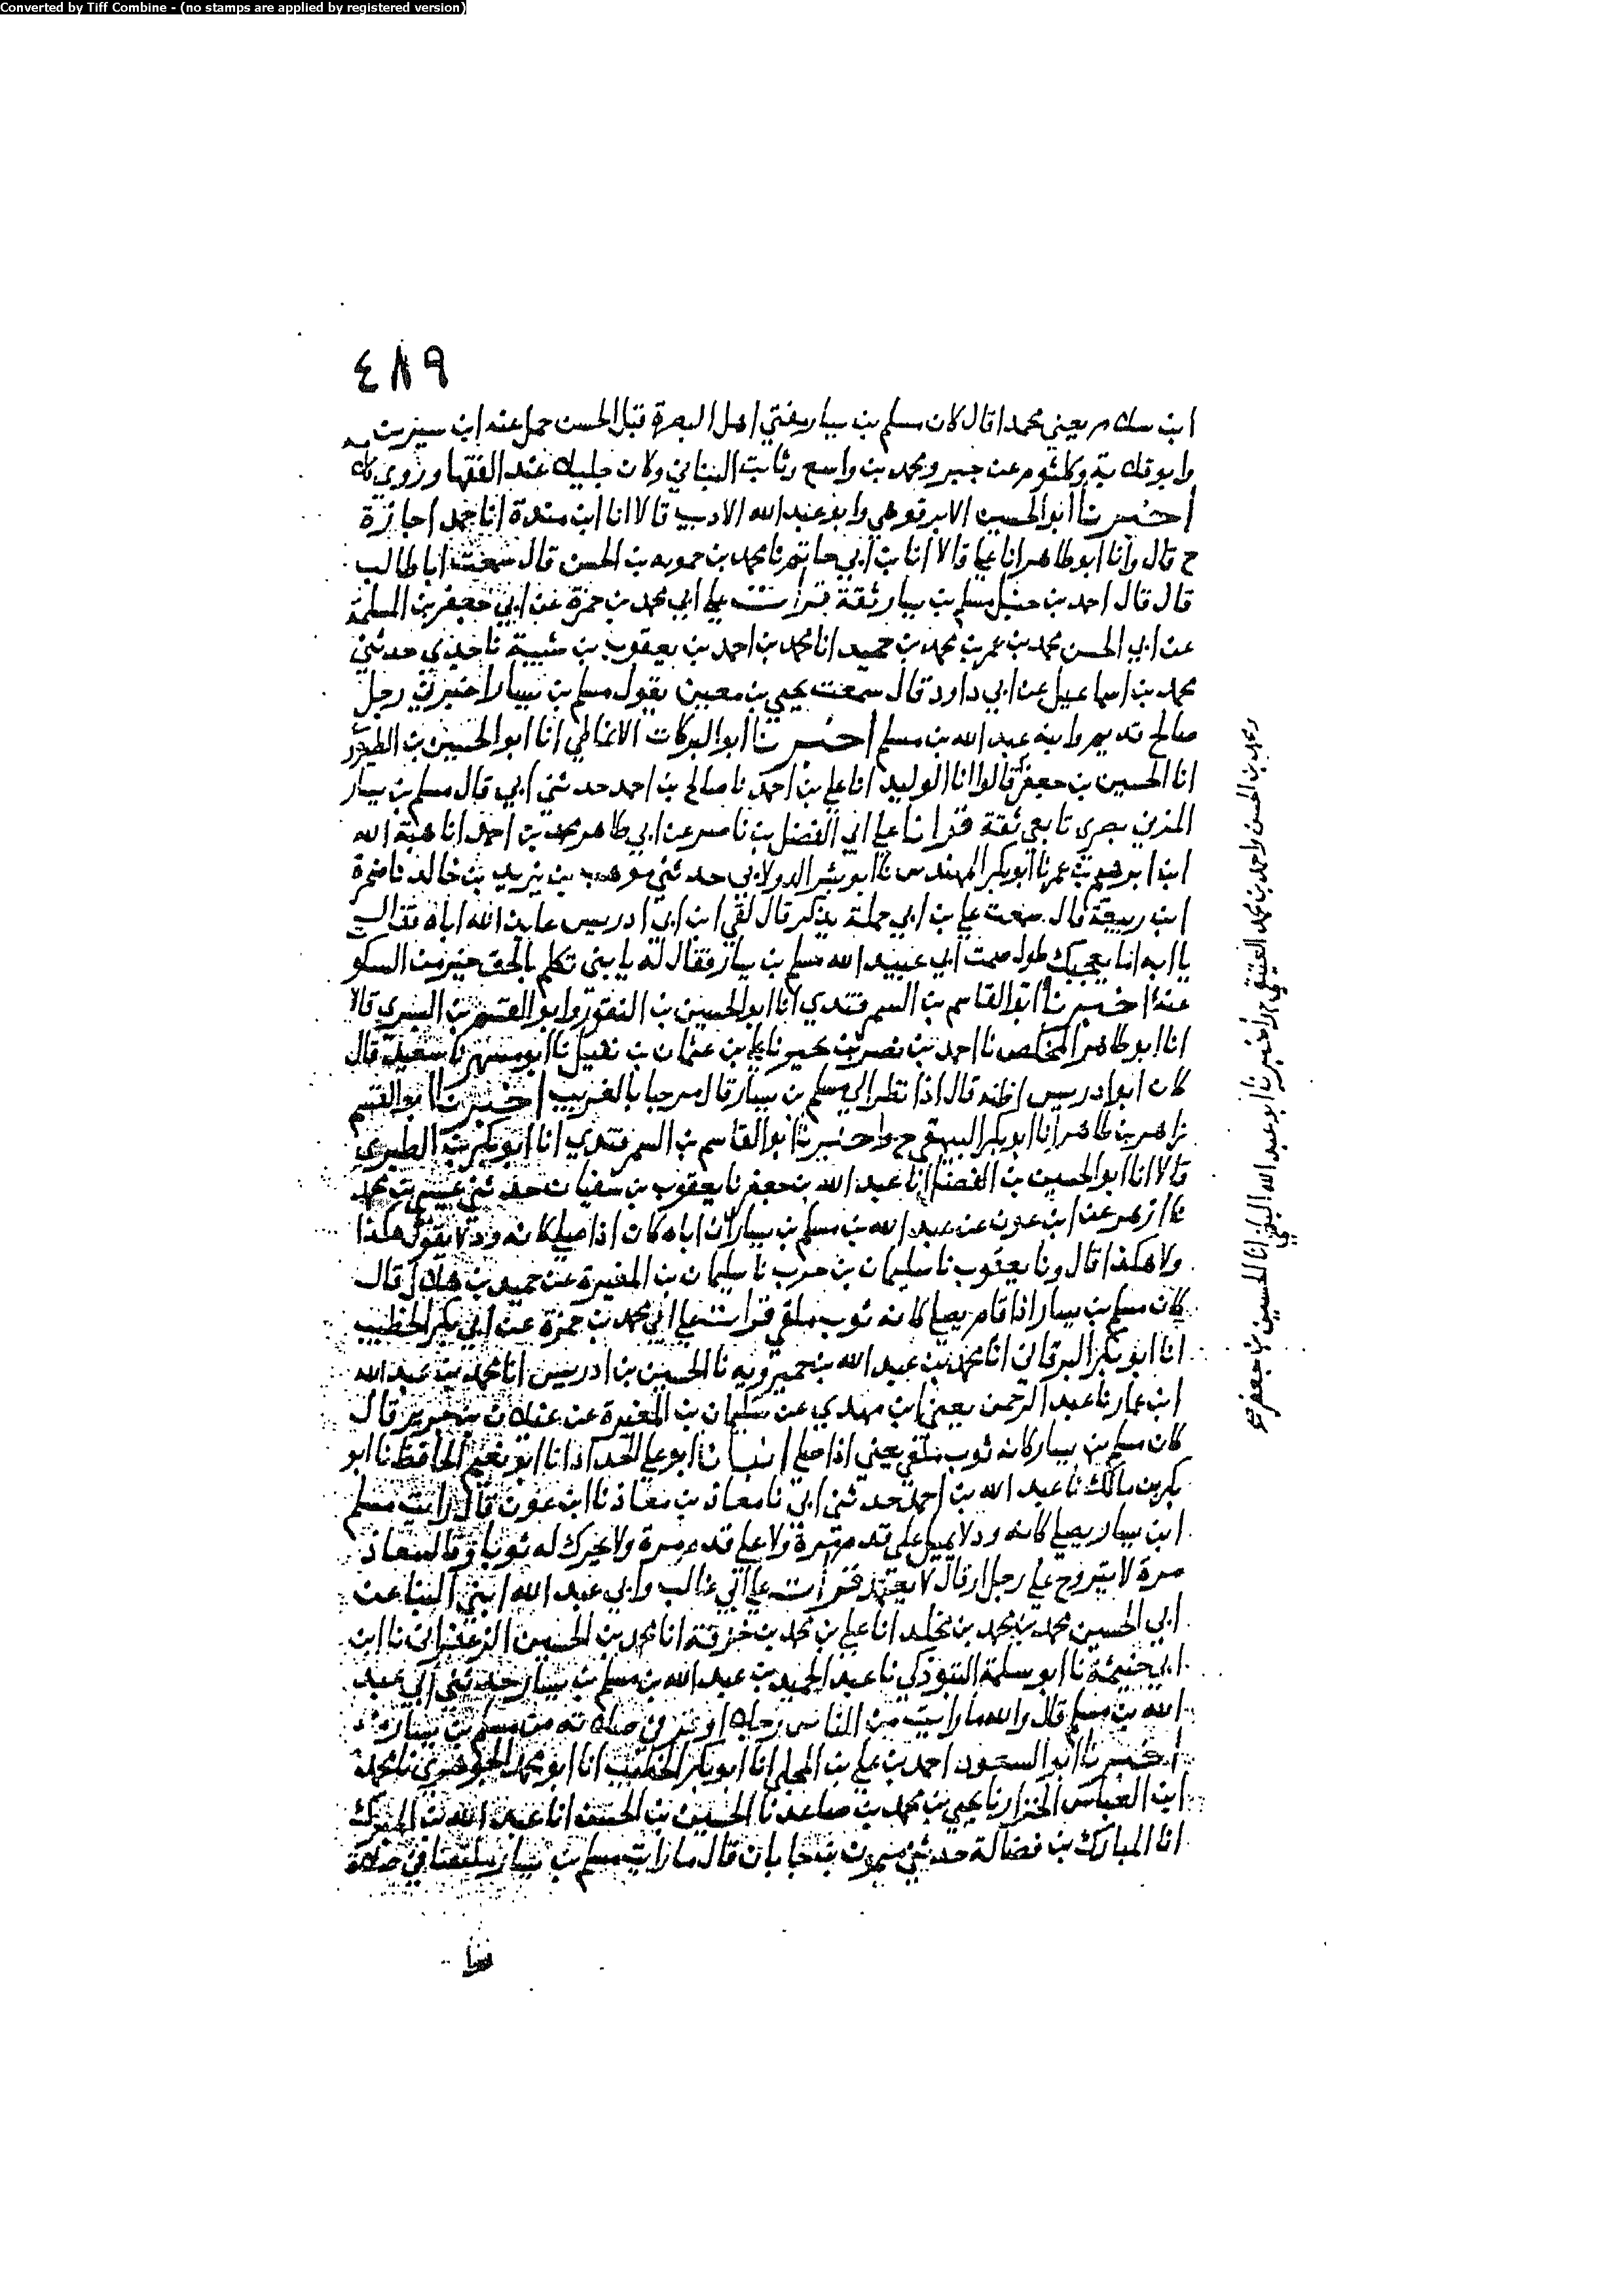 Converted by Tiff Combine - (no stamps are applied by registered version)
٤٨٩
ابن سلام يعني محمدا قال كان مسلم بن يسار يفتي اهل البصرة قبل الحسن حمل عنه ابن سيرين
وابو قلابة وكلثوم عن جبر ومحمد بن واسع وثابت البناني وكان جليلا عند الفقها وروى
اخبرنا ابو الحسين الابرقوهي وابو عبد الله الاديب قالا انا ابن مندة انا حمد اجازة
ح قال وانا ابو طاهر انا علي قالا انا بن ابي حاتم نا محمد بن حمويه بن الحسن قال سمعت ابا طالب
قال قال احمد بن حنبل مسلم بن يسار ثقة قرات على ابي محمد بن حمزة عن ابي جعفر بن المسلمة
عن ابي الحسن محمد بن عمر بن محمد بن حميد انا محمد بن احمد بن يعقوب بن شيبة نا جدي حدثني
محمد بن اسماعيل عن ابي داود قال سمعت يحيى بن معين يقول مسلم بن يسار اخبرني رجل
صالح قديم وابنه عبد الله بن مسلم اخبرنا ابو البركات الانماطي انا ابو الحسين بن الطيوري
انا الحسين بن جعفر قالوا انا الوليد انا علي بن احمد نا صالح بن احمد حدثني ابي قال مسلم بن يسار
المزني بصري تابعي ثقة قرانا على ابي الفضل بن ناصر عن ابي طاهر محمد بن احمد انا هبة الله
ابن ابرهيم بن عمر نا ابو بكر المهندس نا ابو بشر الدولابي حدثني موهب بن يزيد بن خالد نا ضمرة
ابن ربيعة قال سمعت علي بن ابي حملة يذكر قال لقي ابن ابي ادريس عايذ الله اباه فقال
يا ابه اما يعجبك طول صمت ابي عبيد الله مسلم بن يسار فقال له يا بني تكلم بالحق خير من السكو
عنه اخبرنا ابو القاسم بن السمرقندي انا ابو الحسين بن النقور وابو القسم بن البسري قالا
انا ابو طاهر المخلص نا احمد بن نصر بن بحير نا علي بن عثمان بن نفيل نا ابو مسهر نا سعيد قال
كان ابو ادريس اظنه قال اذا نظر الى مسلم بن يسار قال مرحبا بالغريب اخبرنا ابو القسم
زاهر بن طاهر انا ابو بكر البيهقي ح واخبرنا ابو القاسم بن السمرقندي انا ابو بكر بن الطبري
قالا انا ابو الحسين بن الفضل انا عبد الله بن جعفر نا يعقوب بن سفيان حدثني عيسى بن محمد
نا ازهر عن ابن عون عن عبد الله بن مسلم بن يسار ان اباه كان اذا صلى كانه ود لا يقول هكذا
ولا هكذا قال ونا يعقوب نا سليمان بن حرب نا سليمان بن المغيرة عن حميد بن هلال قال
كان مسلم بن يسار اذا قام يصلي كانه ثوب ملقى قرات على ابي محمد بن حمزة عن ابي بكر الخطيب
انا ابو بكر البرقاني انا محمد بن عبد الله بن خميرويه نا الحسين بن ادريس انا محمد بن عبد الله
ابن عمار نا عبد الرحمن يعني ابن مهدي عن سليمان بن المغيرة عن غيلان بن جرير قال
كان مسلم بن يسار كانه ثوب ملقى يعني اذا صلى انبانا ابو علي الحداد انا ابو نعيم الحافظ نا ابو
بكر بن مالك نا عبد الله بن احمد حدثني ابي نا معاذ بن معاذ نا ابن عون قال رايت مسلم
ابن يسار يصلي كانه ود لا يميل على قدم مرة ولا على قدم مرة ولا يحرك له ثوبا وقال معاذ
مرة لا يتروح على رجل او قال لا يعتمد قرات على ابي غالب وابي عبد الله ابني البنا عن
ابي الحسين محمد بن محمد بن مخلد انا علي بن محمد بن خزفة انا محمد بن الحسين الزعفراني نا ابن
ابي خيثمة نا ابو سلمة التبوذكي نا عبد الحميد بن عبد الله بن مسلم بن يسار حدثني ابي عبد
الله بن مسلم قال والله ما رايت من الناس رجلا اوقر في صلاته من مسلم بن يسار
اخبرنا ابو السعود احمد بن علي بن المجلي انا ابو بكر الخطيب انا ابو محمد الجوهري نا محمد
ابن العباس الخزاز نا يحيى بن محمد بن صاعد نا الحسين بن الحسن انا عبد الله بن المبرك
انا المبارك بن فضالة حدثني ميمون بن جابان قال ما رايت مسلم بن يسار ملتفتا في صلاة
ومحمد بن الحسن واحمد بن محمد العتيقي ح واخبرنا ابو عبد الله البلخي انا الحسين بن جعفر